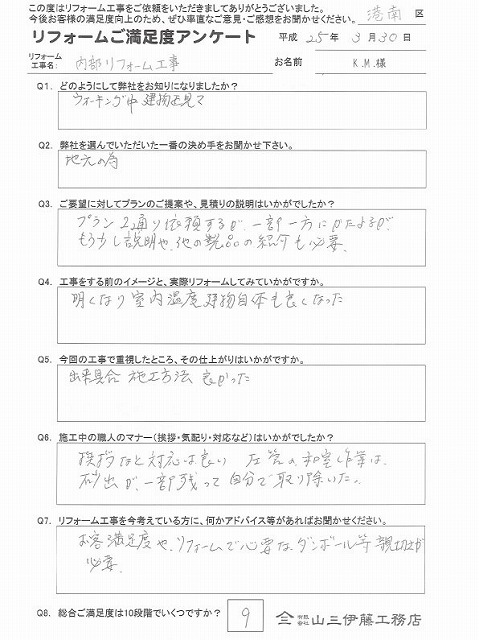 この度はリフォーム工事をご依頼をいただきましてありがとうございました。
今後お客様の満足度向上のため、ぜひ率直なご意見・ご感想をお聞かせください。 港南 区
リフォームご満足度アンケート 平成 25年 3月30日
リフォーム工事名: 内部リフォーム工事 お名前 K.M.様
Q1. どのようにして弊社をお知りになりましたか?
ウォーキング中 建物を見て
Q2. 弊社を選んでいただいた一番の決め手をお聞かせ下さい。
地元の為
Q3. ご要望に対してプランのご提案や、見積りの説明はいかがでしたか?
プラン2通り依頼するが、一部一方にかたよるが、
もう少し説明や、他の製品の紹介も必要。
Q4. 工事をする前のイメージと、実際リフォームしてみていかがですか。
明くなり 室内温度 建物自体も良くなった
Q5. 今回の工事で重視したところ、その仕上がりはいかがですか。
出来具合 施工方法 良かった
Q6. 施工中の職人のマナー(挨拶・気配り・対応など)はいかがでしたか?
挨拶など対応は良い 左官の和室作業は、
砂出が、一部残って自分で取り除いた。
Q7. リフォーム工事を今考えている方に、何かアドバイス等があればお聞かせください。
お客満足度や、リフォームで必要な、ダンボール等 親切さが
必要。
Q8. 総合ご満足度は10段階でいくつですか? 9 有限会社 山三伊藤工務店